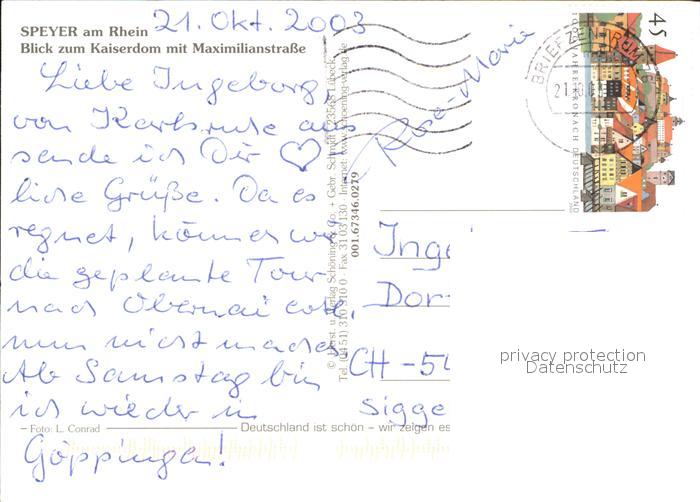 SPEYER am Rhein
Blick zum Kaiserdom mit Maximilianstraße
21. Okt. 2003
Liebe Ingeborg,
von Karlsruhe aus
sende ich Dir ♡
liche Grüße. Da es
regnet, können wir
die geplante Tour
nach Obernai
nun nicht machen
Ab Samstag bin
ich wieder in
Göppingen!
Rose-Marie
Foto: L. Conrad
Deutschland ist schön – wir zeigen es
© Horst. u. Verlag Schöning & Co. + Gebr. Schmidt, 23568 Lübeck
Tel. (0451) 310 310 0 · Fax 31 03 130 · Internet: www.schoening-verlag.de
001.67346.0279
BRIEFZENTRUM
21.10.
45
JAHRE KRONACH
DEUTSCHLAND
Inge
Dor
CH-54
Sigge
privacy protection
Datenschutz